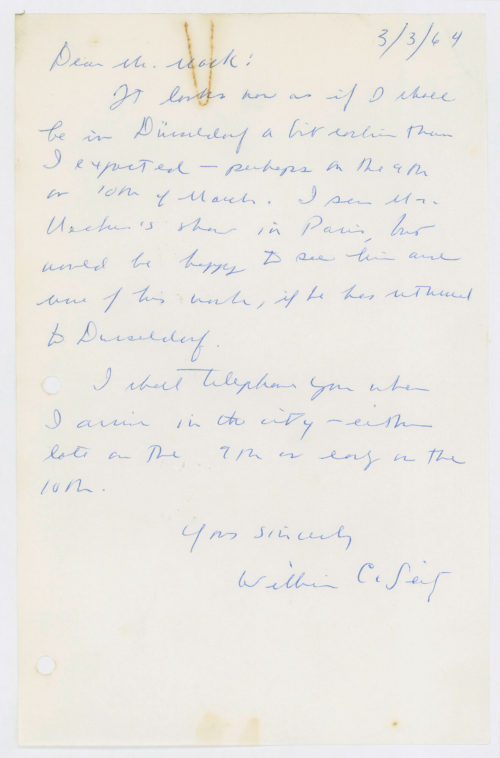 3/3/64
Dear Mr. Mack:
It looks now as if I shall
be in Düsseldorf a bit earlier than
I expected – perhaps on the 9th
or 10th of March. I saw Mr.
Uecker's show in Paris, but
would be happy to see him and
more of his work, if he has returned
to Dusseldorf.
I shall telephone you when
I arrive in the city – either
late on the 9th or early on the
10th.
Yours sincerely
William C. Seitz